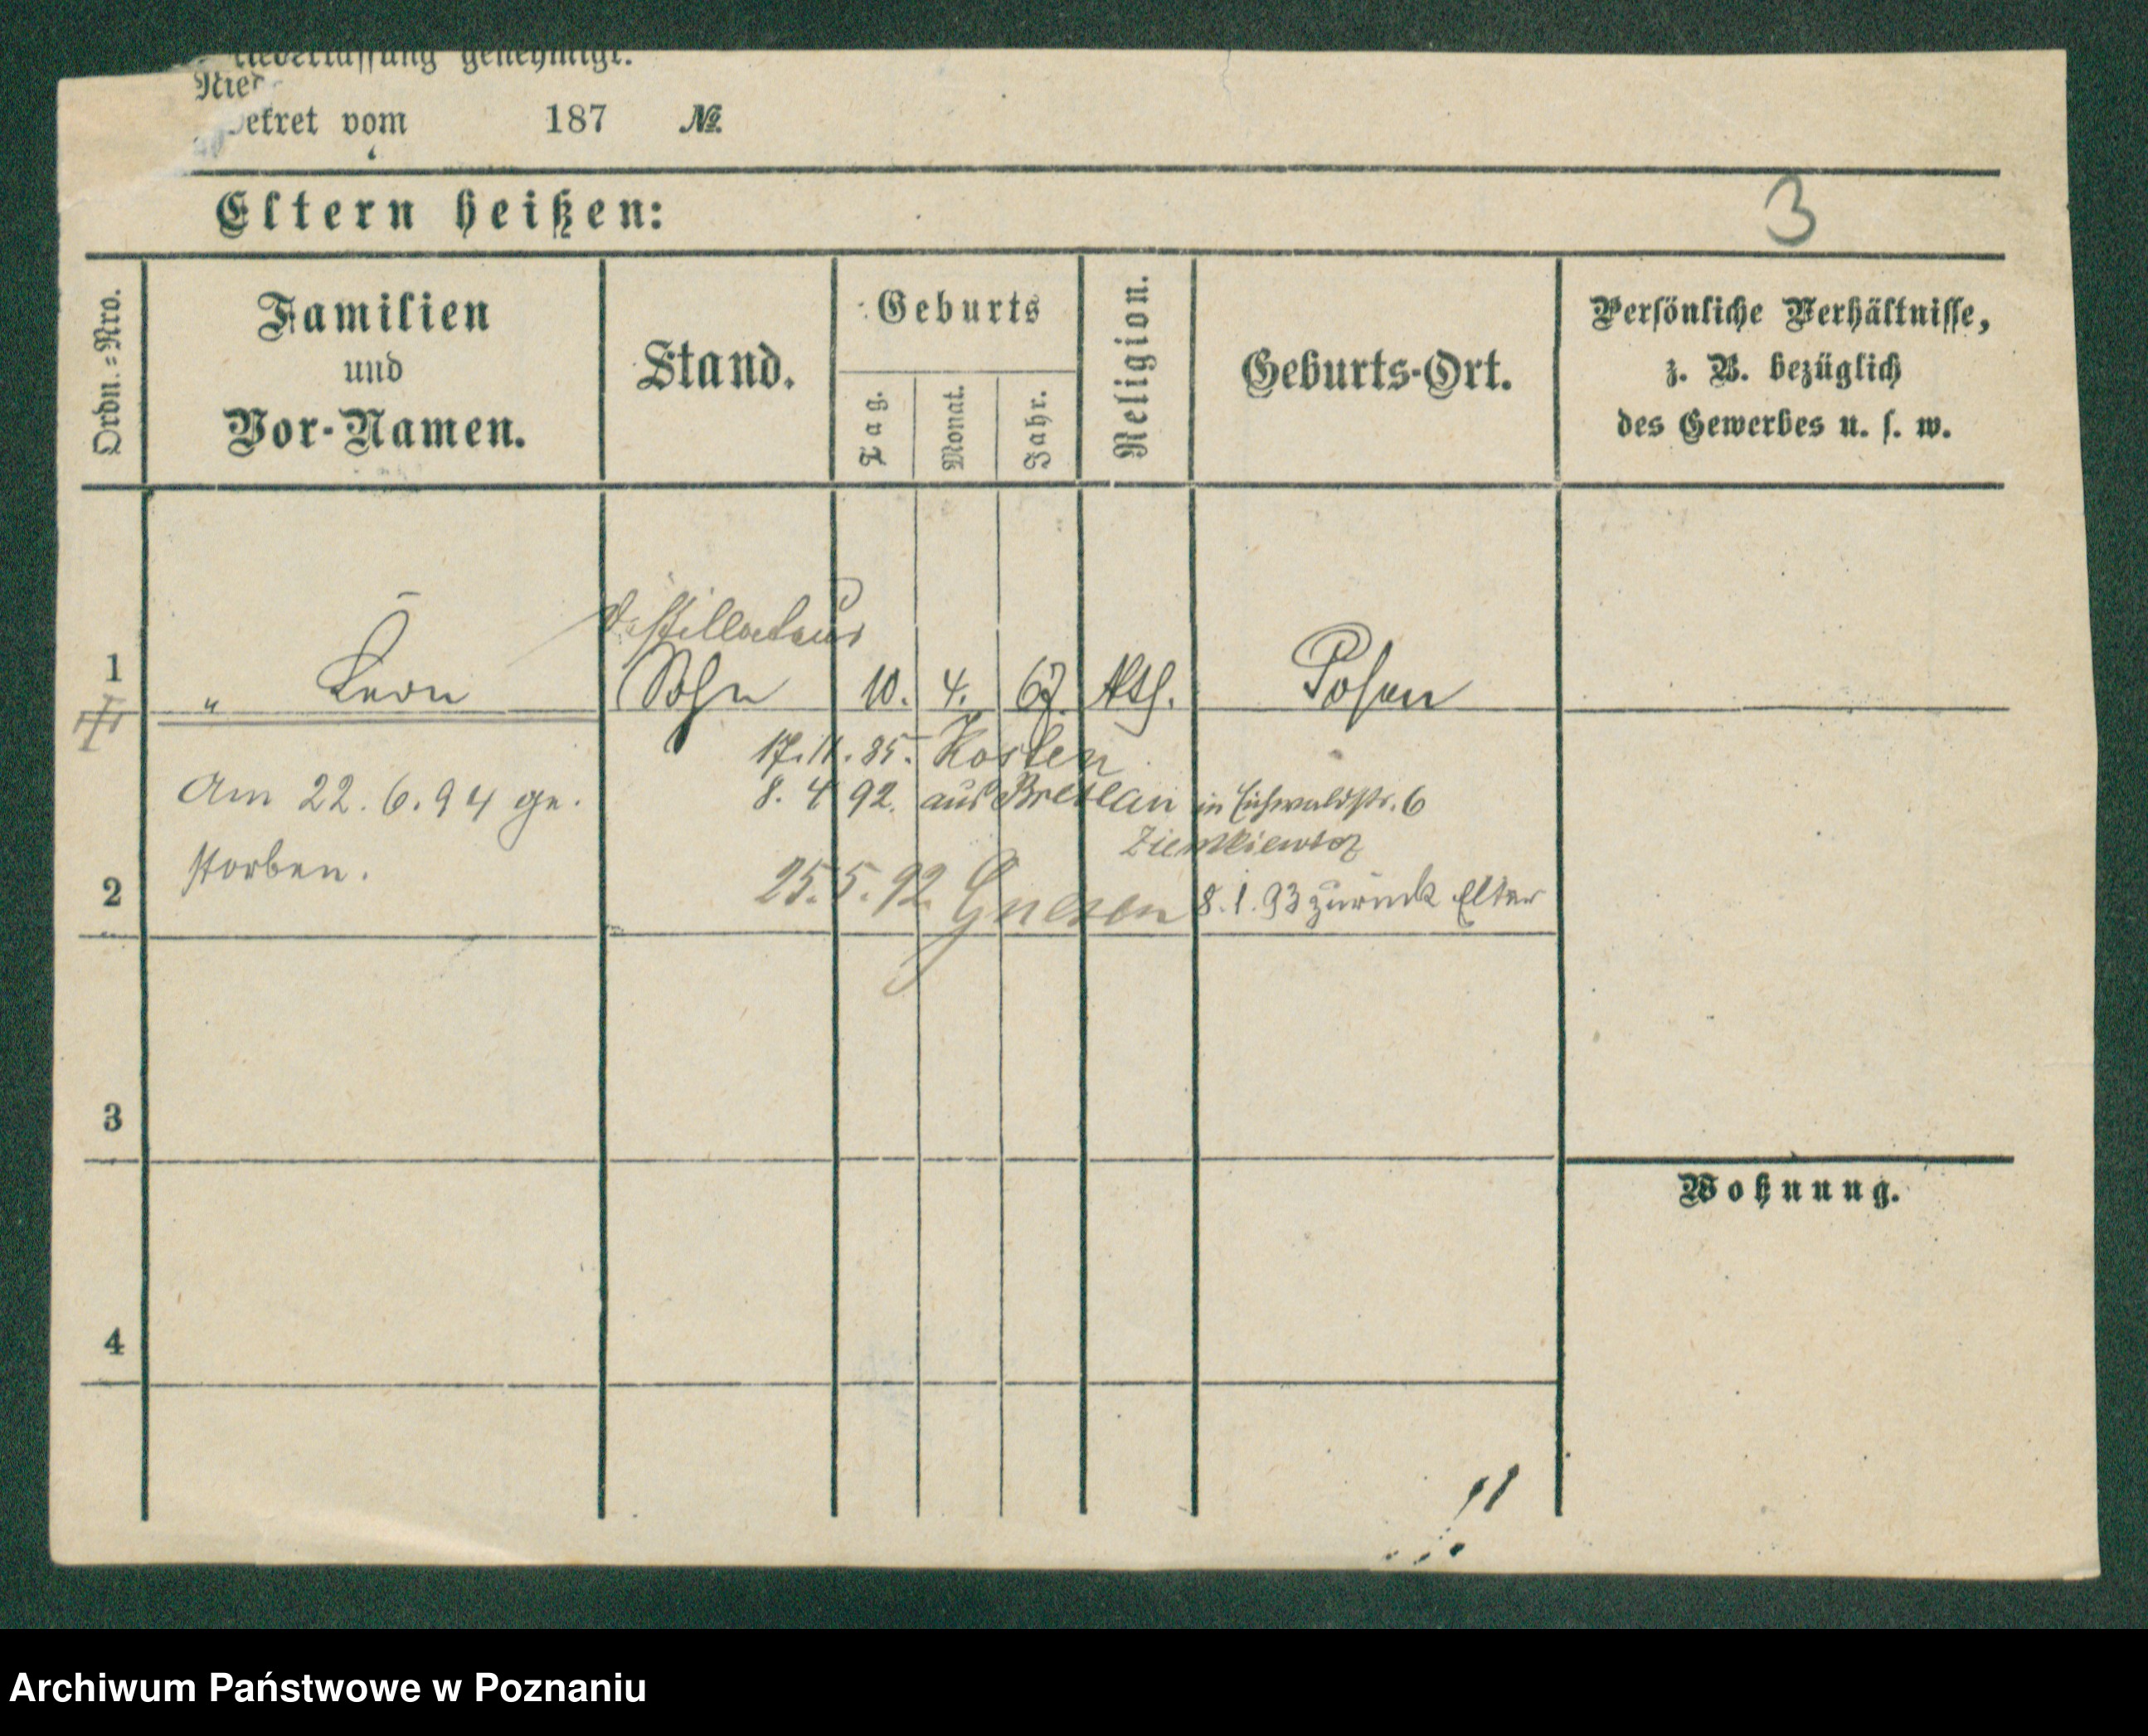 Niederlassung genehmigt.
Nied
Dekret vom 187 №
Eltern heißen:
3
Ordn.=Nro.
Familien
und
Vor-Namen.
Stand.
Geburts
Tag.
Monat.
Jahr.
Religion.
Geburts-Ort.
Persönliche Verhältnisse,
z. B. bezüglich
des Gewerbes u. s. w.
Destillateur
1 " Leon Sohn 10. 4. 67. kth. Posen
17.11.85. Kosten
Am 22.6.94 ge-
8.4 92. aus Breslau in Eichwaldstr. 6
storben.
2
25.5.92. Gnesen 8.1.93 zurück Elter
3
Wohnung.
4
Archiwum Państwowe w Poznaniu